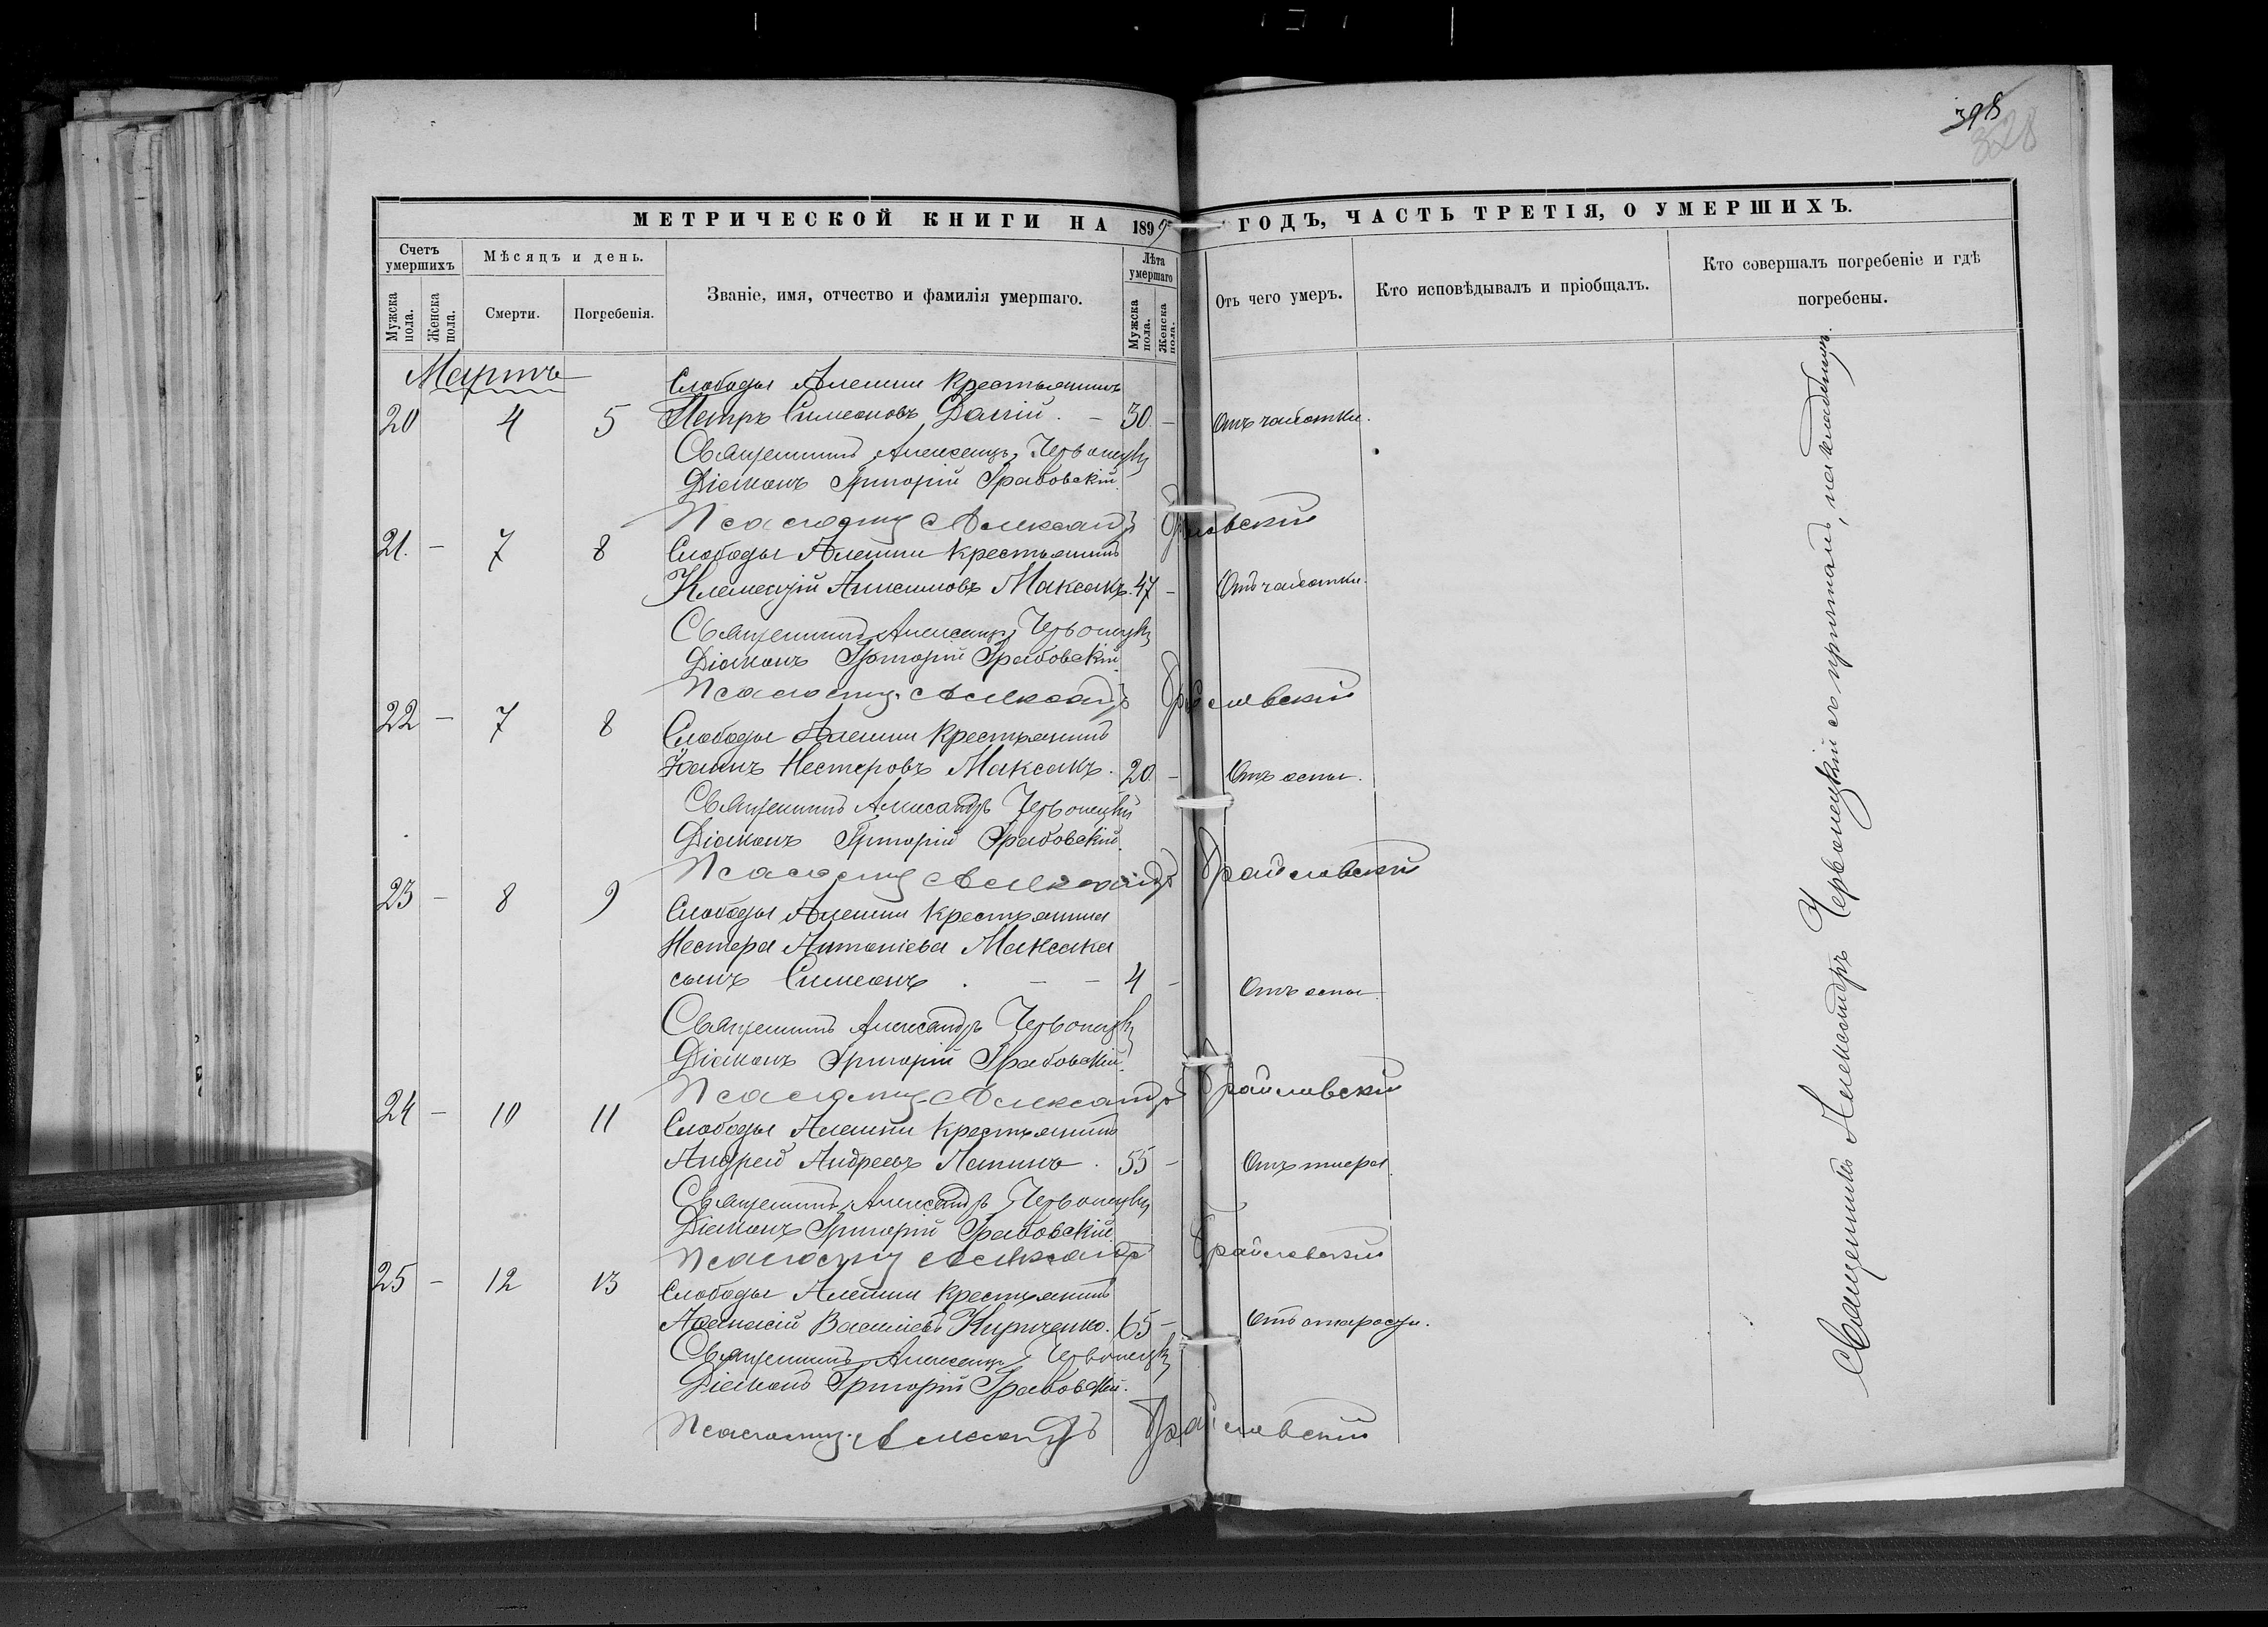 398
328
МЕТРИЧЕСКОЙ КНИГИ НА 1895 ГОДЪ, ЧАСТЬ ТРЕТІЯ, О УМЕРШИХЪ.
Счетъ умершихъ
Мужска пола.
Женска пола.
Мѣсяцъ и день.
Смерти.
Погребенія.
Званіе, имя, отчество и фамилія умершаго.
Лѣта умершаго
Мужска пола.
Женска пола.
Отъ чего умеръ.
Кто исповѣдывалъ и пріобщалъ.
Кто совершалъ погребеніе и гдѣ погребены.
Мартъ
Слободы Алешни крестьянинъ
20 4 5 Петръ Симеоновъ 30. – Отъ чахотки.
Священникъ Александръ Червонецкій
Діаконъ Григорій Грабовскій
Псаломщ. Александръ
21. – 7 8 Слободы Алешни крестьянинъ
Климентій Анисимовъ Максакъ. 47 – Отъ чахотки.
Священникъ Александръ Червонецкій
Діаконъ Григорій Грабовскій
Псаломщ. Александръ
22 – 7 8 Слободы Алешни крестьянинъ
Іоаннъ Нестеровъ Максакъ. 20. – Отъ оспы.
Священникъ Александръ Червонецкій
Діаконъ Григорій Грабовскій.
Псаломщ. Александръ
23 – 8 9 Слободы Алешни крестьянина
Нестера Антоніева Максака
сынъ Симеонъ . – – 4 – Отъ оспы.
Священникъ Александръ Червонецкій
Діаконъ Григорій Грабовскій.
Псаломщ. Александръ
24 – 10 11 Слободы Алешни крестьянинъ
Андрей Андреевъ . 55 – Отъ тифа.
Священникъ Александръ Червонецкій
Діаконъ Григорій Грабовскій
Псаломщ. Александръ
25 – 12 13 Слободы Алешни крестьянинъ
Аѳанасій Василіевъ Кириченко. 65 – Отъ старости.
Священникъ Александръ Червонецкій
Діаконъ Григорій Грабовскій.
Псаломщ. Александръ
Священникъ Александръ Червонецкій съ причтомъ, на кладбищѣ.